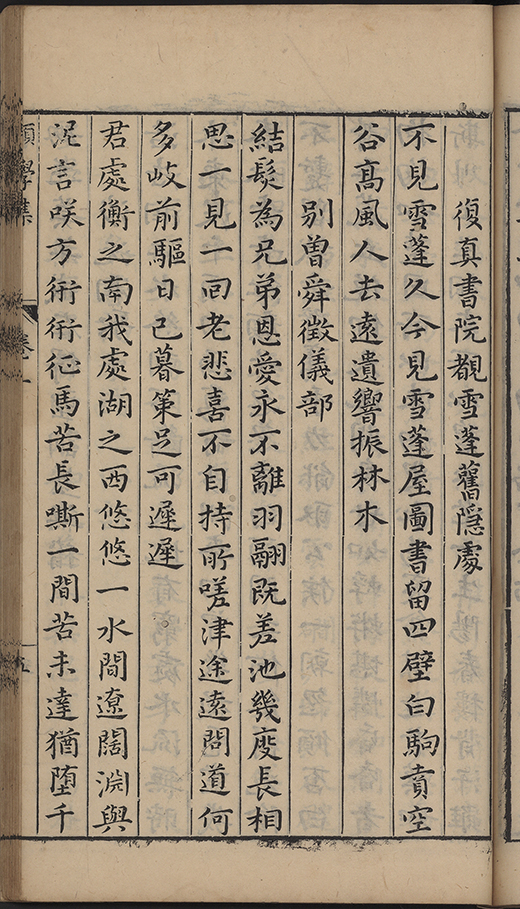 復真書院覩雪蓬舊隱處
不見雪蓬久今見雪蓬屋圖書留四壁白駒賁空
谷髙風人去遠遺響振林木
別曽舜徵儀部
結髮為兄弟恩愛永不離羽翮旣差池幾度長相
思一見一回老悲喜不自持所嗟津途遠問道何
多岐前驅日已暮策足可遲遲
君處衡之南我處湖之西悠悠一水間遼闊渊與
泥言咲方衎衎征馬苦長嘶一間苦未達猶堕千
學集 卷一